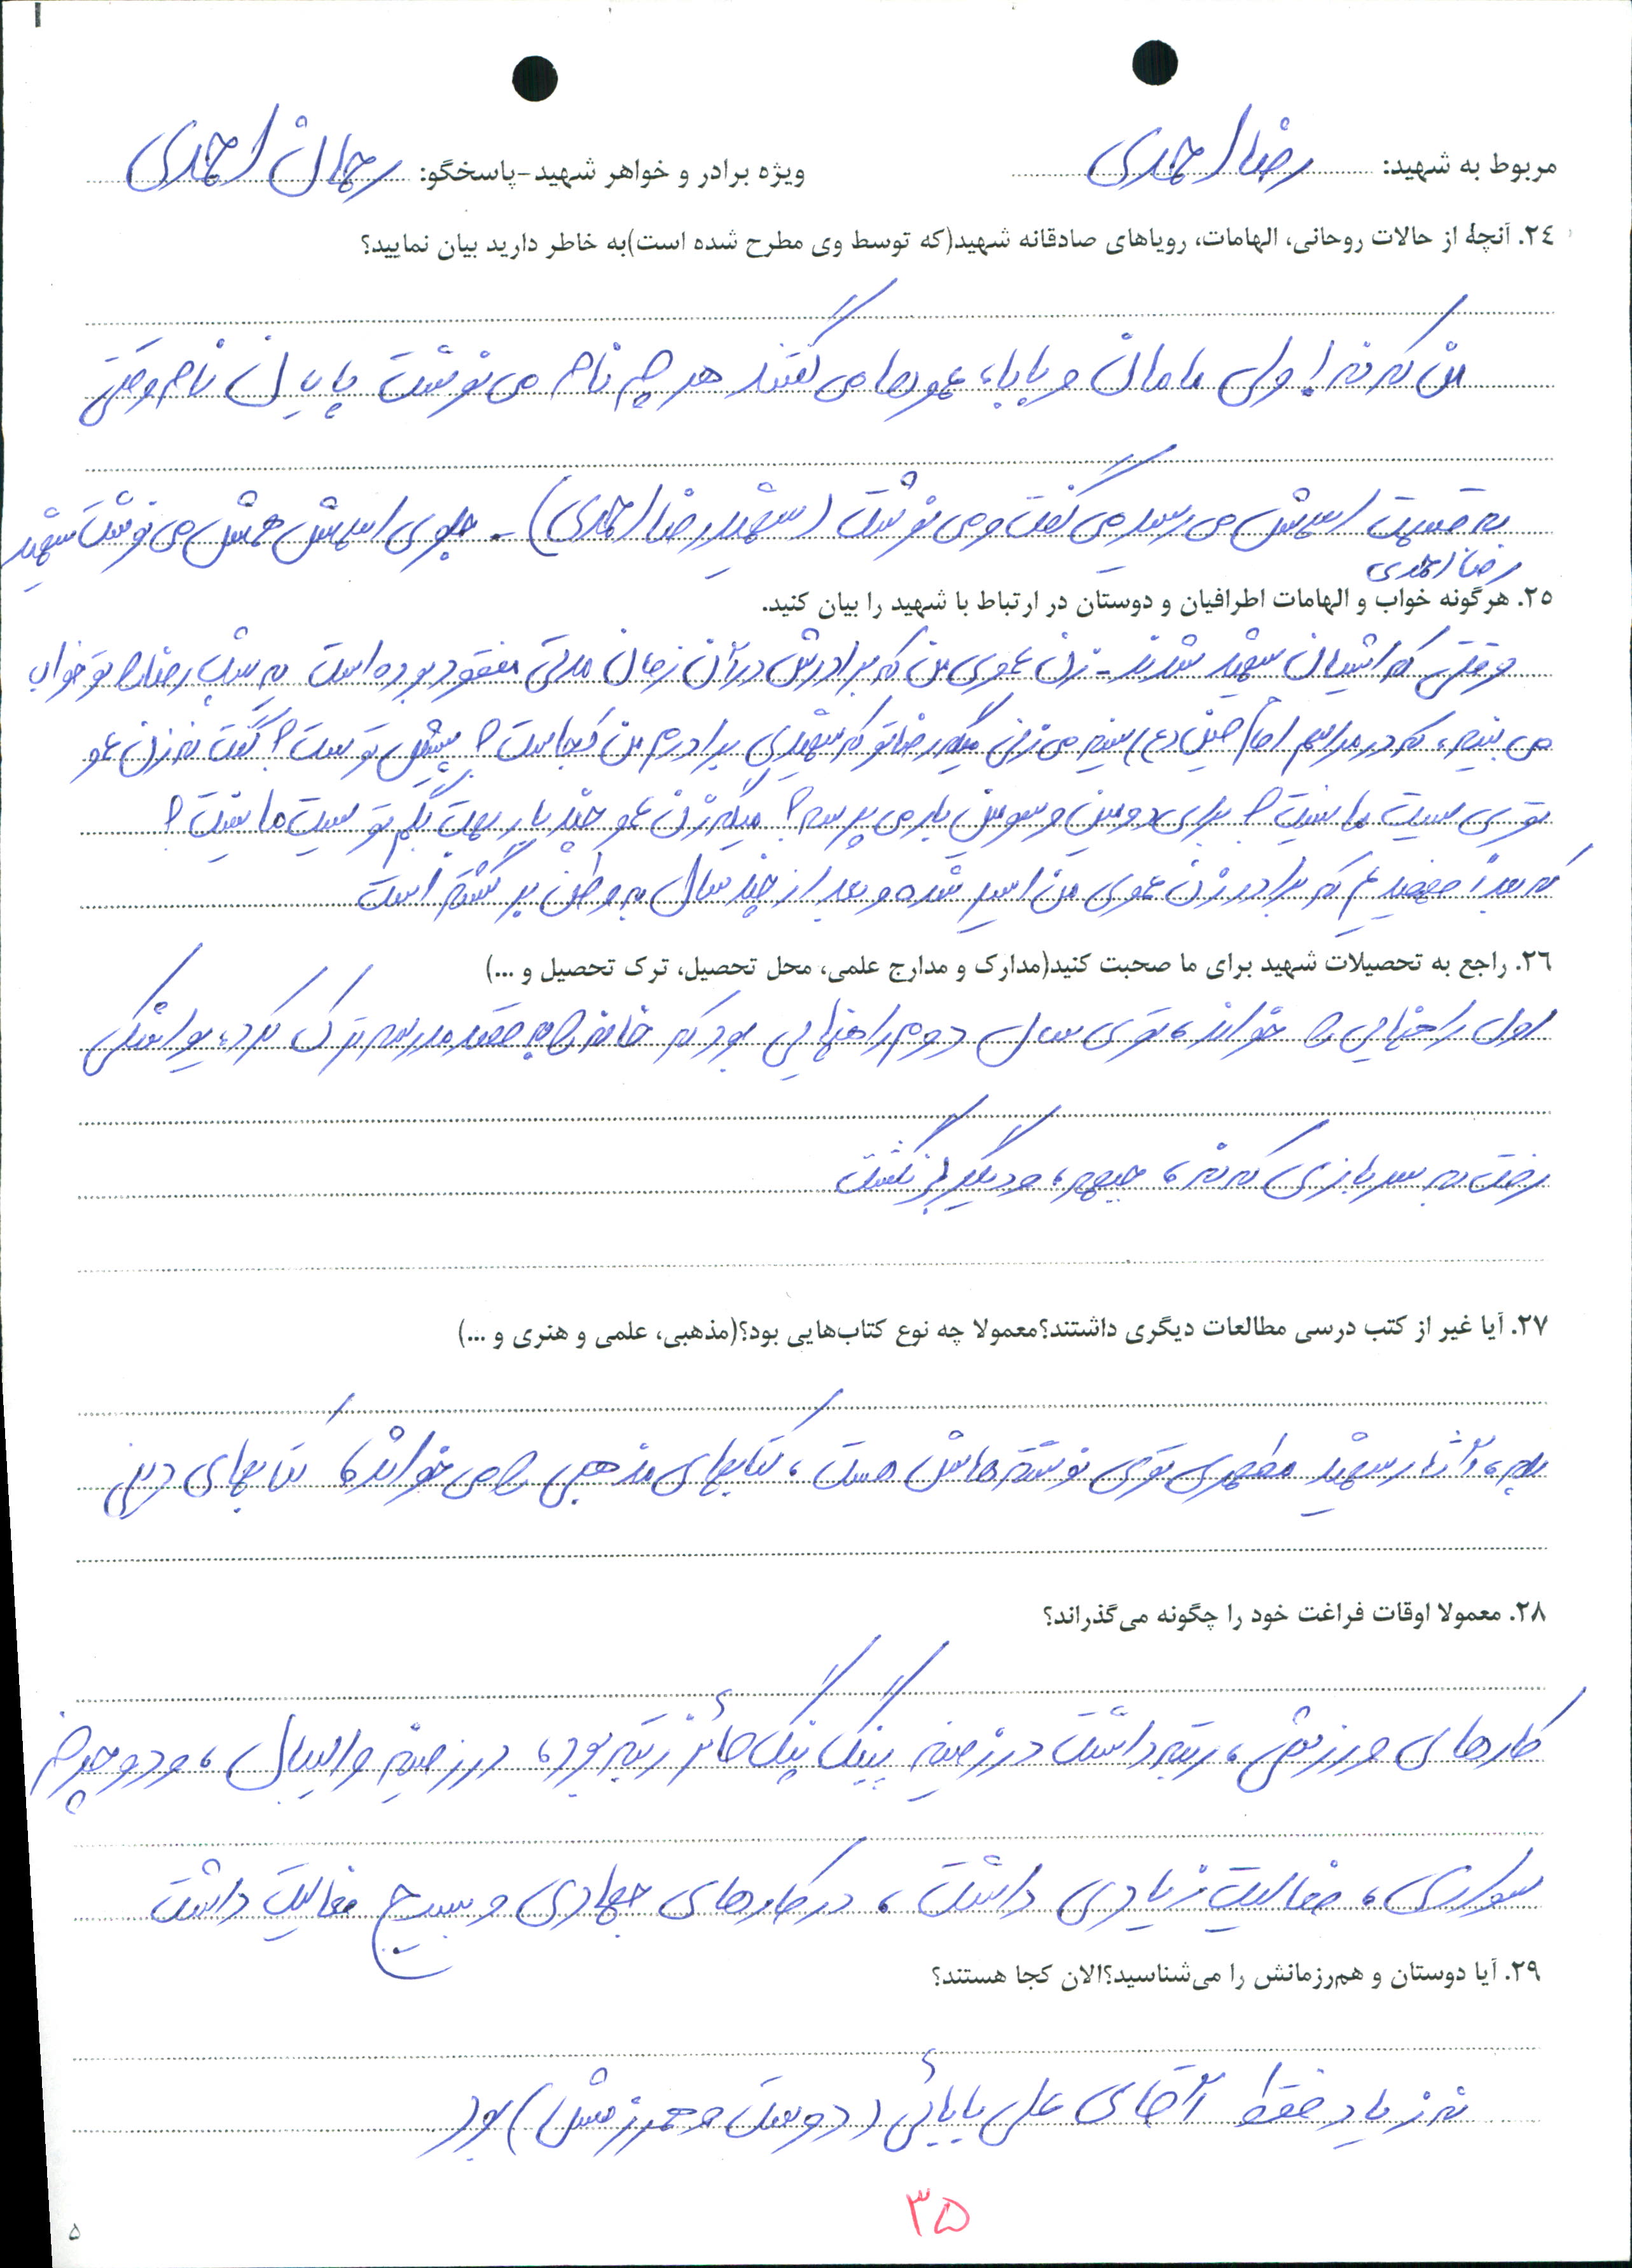 مربوط به شهید: رضا احمدی ویژه برادر و خواهر شهید-پاسخگو: رحمان احمدی
۲٤. آنچه از حالات روحانی، الهامات، رویاهای صادقانه شهید(که توسط وی مطرح شده است)به خاطر دارید بیان نمایید؟
من که نه! ولی مامان و بابا، عموها می گفتند هر چه نامه می نوشت پایان نامه وقتی
به قسمت اسمش می رسید می گفت و می نوشت (شهید رضا احمدی) - جلوی اسمش همش می نوشت شهید
رضا احمدی
۲٥. هرگونه خواب و الهامات اطرافیان و دوستان در ارتباط با شهید را بیان کنید.
وقتی که ایشان شهید شدند - زن عموی من که برادرش در آن زمان مدتی مفقود بوده است یه شب رضا را تو خواب
می بینه، که در مراسم امام حسین (ع) سینه می زنن میگه رضا تو که شهیدی برادرم من کجاست؟ پیش تو ست؟ گفت نه زن عمو
توی لیست ما نیست؟ برای دومین و سومین بار می پرسه؟ میگه زن عمو چند بار بهت بگم تو لیست ما نیست؟
که بعداً فهمیدیم که برادر زن عموی من اسیر شده و بعد از چند سال به وطن برگشته است
۲٦. راجع به تحصیلات شهید برای ما صحبت کنید(مدارک و مدارج علمی، محل تحصیل، ترک تحصیل و ...)
اول راهنمایی را خواند، توی سال دوم راهنمایی بود که مدرسه ترک کرد، یواشکی
رفت به سربازی که نه، جبهه، و دیگر برنگشت
۲۷. آیا غیر از کتب درسی مطالعات دیگری داشتند؟معمولا چه نوع کتاب‌هایی بود؟(مذهبی، علمی و هنری و ...)
بله، آثار شهید مطهری توی نوشته هاش هست، کتابهای مذهبی را می خواند، کتابهای دینی
۲۸. معمولا اوقات فراغت خود را چگونه می‌گذراند؟
کارهای ورزشی، رتبه داشت در زمینه پینگ پنگ حائز رتبه بود، در زمینه والیبال، و دوچرخه
سواری، فعالیت زیادی داشت، در کارهای جهادی و بسیج فعالیت داشت
۲۹. آیا دوستان و هم‌رزمانش را می‌شناسید؟الان کجا هستند؟
نه زیاد فقط آقای علی بابائی (دوست و همرزمش) بود
۳۵
۵